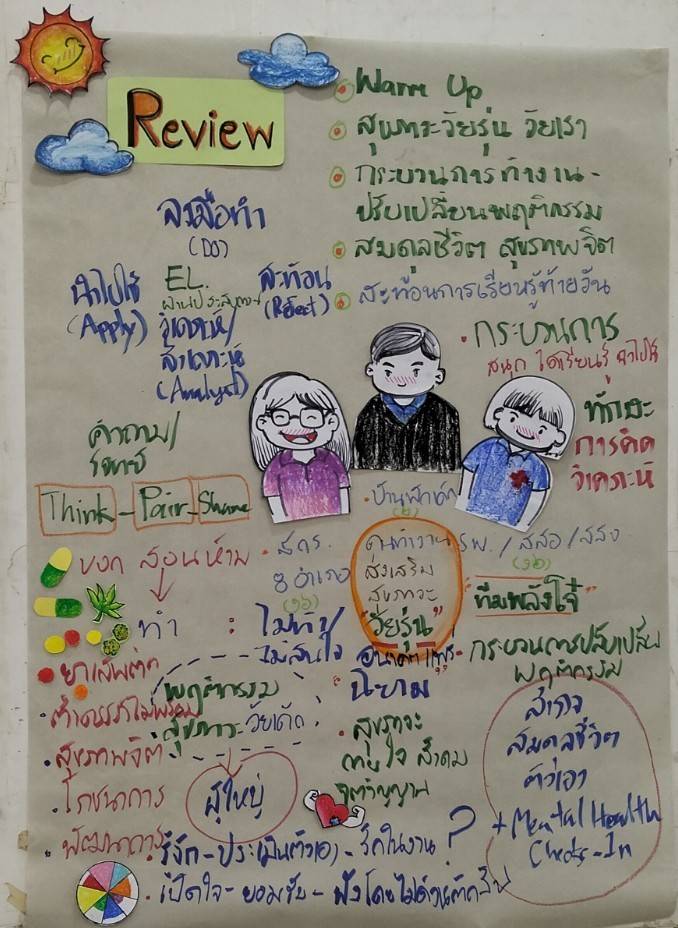 Review
Warm Up
สุขภาวะวัยรุ่น วัยเรา
กระบวนการทำงาน -
ปรับเปลี่ยนพฤติกรรม
สมดุลชีวิต สุขภาพจิต
สะท้อนการเรียนรู้ท้ายวัน
ลงมือทำ
(DO)
นำไปใช้
(Apply)
EL.
ผ่านประสบการณ์
สะท้อน
(Reflect)
วิเคราะห์/
สังเคราะห์
(Analyst)
คำถาม/
โจทย์
Think - Pair - Share
กระบวนการ
สนุก ได้เรียนรู้ นำไปใช้
ทักษะ
การคิด
วิเคราะห์
บ้านพักเด็ก
(2)
บอก สอน ห้าม
ทำ : ไม่ทำ/
ไม่สนใจ
สคร.
8 อำเภอ
คนทำงาน
ส่งเสริม
สุขภาวะ
"วัยรุ่น"
รพ. / สสอ / สสจ
"ทีมพลังโจ๋"
กระบวนการปรับเปลี่ยน
พฤติกรรม
ยาเสพติด
ตั้งครรภ์ไม่พร้อม
สุขภาพจิต
โภชนาการ
พัฒนาการ
พฤติกรรม
สุขภาวะ วัยเด็ก
ผู้ใหญ่
อนาคตแพร่
"นิยาม"
สุขภาวะ
กาย ใจ สังคม
จิตวิญญาณ
สำรวจ
สมดุลชีวิต
ตัวเอง
+ Mental Health
Check-In
รู้จัก - ประเมินตัวเอง - รักในงาน ?
เปิดใจ - ยอมรับ - ฟังโดยไม่ด่วนตัดสิน